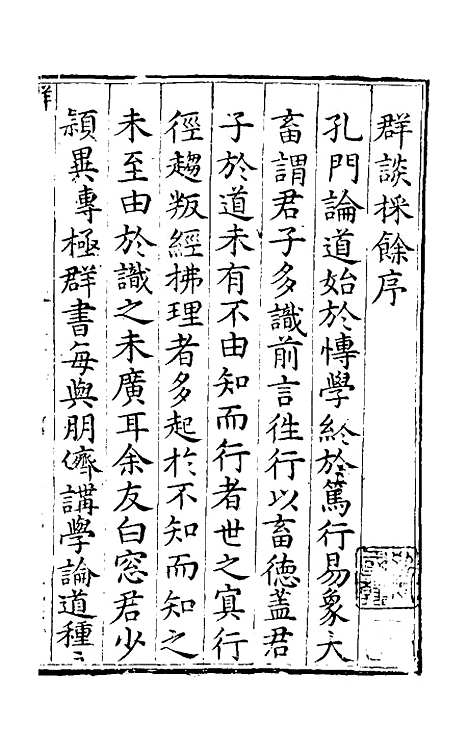 群談採餘序
孔門論道始於博學終於篤行易象大
畜謂君子多識前言徃行以畜徳蓋君
子於道未有不由知而行者世之寘行
徑趨叛經拂理者多起於不知而知之
未至由於識之未廣耳余友白窓君少
頴異專極群書每與朋儕講學論道種〻
群